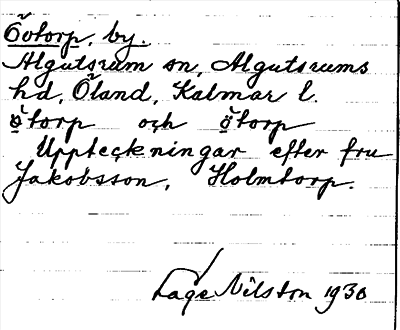 Övtorp, by.
Algutsrum sn, Algutsrums
hd, Öland, Kalmar l.
ötorp och ötorp
Uppteckningar efter fru
Jakobsson, Holmtorp.
Lage Nilsson 1930